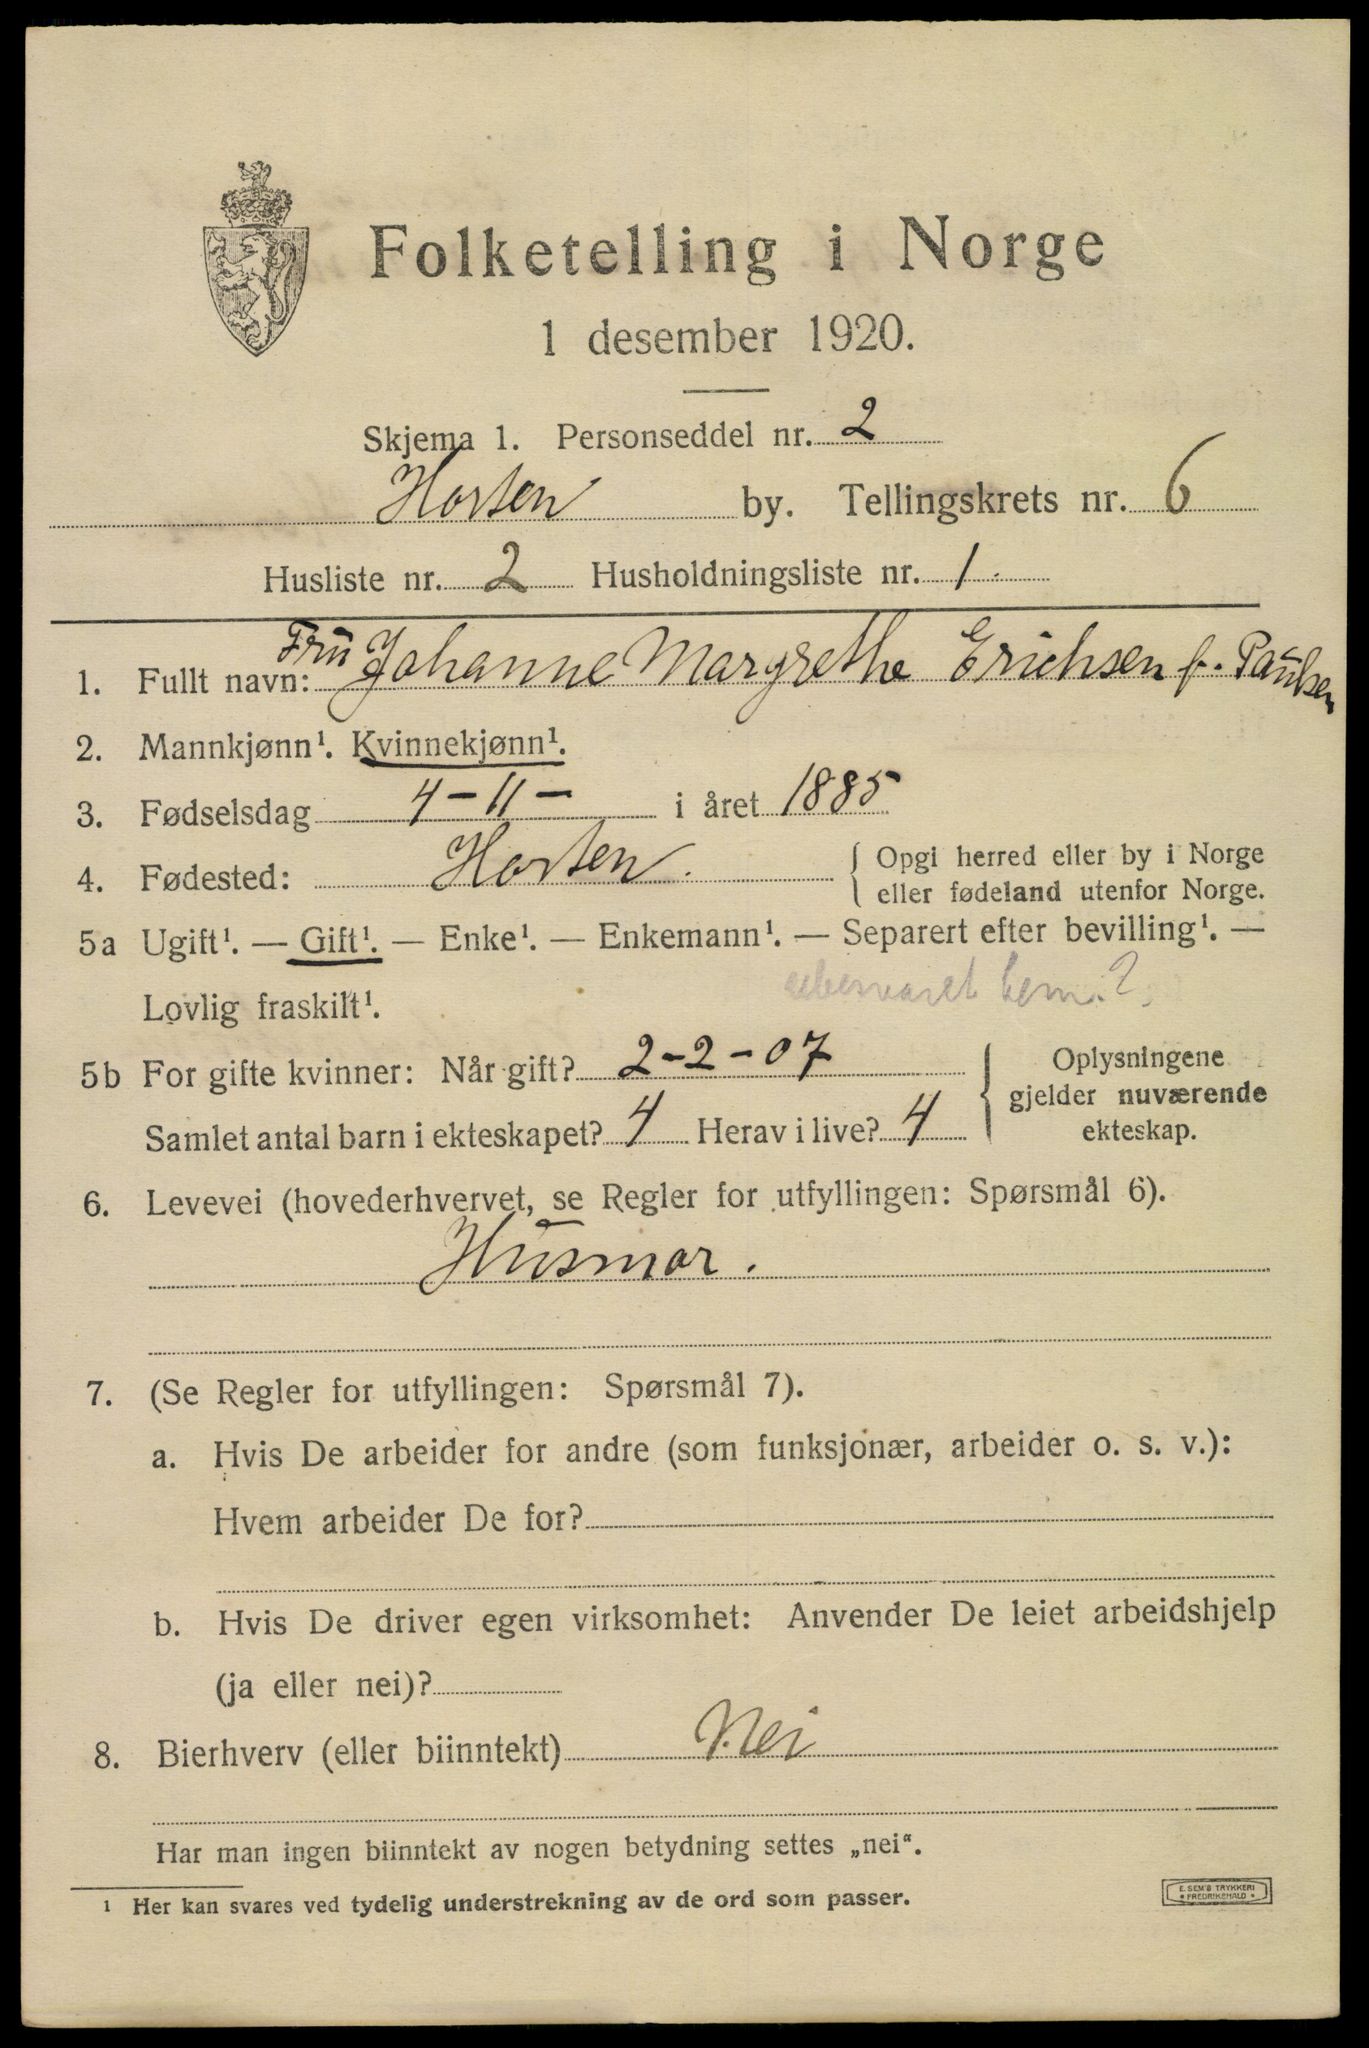 Folketelling i Norge
1 desember 1920.
Skjema 1. Personseddel nr. 2
Horten by. Tellingskrets nr. 6
Husliste nr. 2 Husholdningsliste nr. 1.
1. Fullt navn: Fru Johanne Margrethe Erichsen f. Paulsen
2. Mannkjønn¹. Kvinnekjønn¹.
3. Fødselsdag 4-11- i året 1885
4. Fødested: Horten. { Opgi herred eller by i Norge
eller fødeland utenfor Norge.
5a Ugift¹. — Gift¹. — Enke¹. — Enkemann¹. — Separert efter bevilling¹. —
Lovlig fraskilt¹.
5b For gifte kvinner: Når gift? 2-2-07
Samlet antal barn i ekteskapet? 4 Herav i live? 4
{ Oplysningene
gjelder nuværende
ekteskap.
6. Levevei (hovederhvervet, se Regler for utfyllingen: Spørsmål 6).
Husmor.
7. (Se Regler for utfyllingen: Spørsmål 7).
a. Hvis De arbeider for andre (som funksjonær, arbeider o. s. v.):
Hvem arbeider De for?
b. Hvis De driver egen virksomhet: Anvender De leiet arbeidshjelp
(ja eller nei)?
8. Bierhverv (eller biinntekt) Nei
Har man ingen biinntekt av nogen betydning settes „nei“.
¹ Her kan svares ved tydelig understrekning av de ord som passer.
E. SEM'S TRYKKERI
* FREDRIKSHALD *